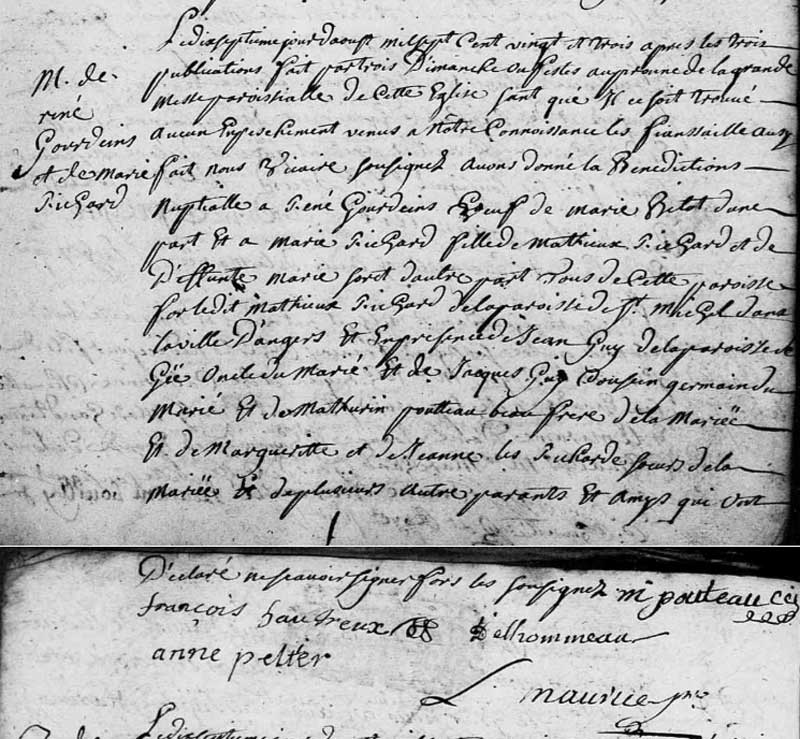 M. de
riné
Gourdeins
et de marie
Richard
Le dixseptiemejour daoust mil sept Cent vingt et trois apres les trois
publications fait par trois Dimanche ou festes au prosne de la grande
messe paroissialle de Cette Eglise sant qué Il ce soit trouué
aucun Empeschement venus a Notre Connoissance les fianssaille aussy
fait nous Vicaire sousignez auons donné la Benedictions
Nuptialle a René Gourdeins Veeuf de marie Bitot dune
part Et a marie Richard fille de Mathieux Richard et de
Deffunte marie soret dautre part Tous de Cette paroisse
fors ledit Mathieux Richard de la paroisse de St. Michel dans
la ville D'angers Et En presence de Jean Guy de la paroisse de
Gée Oncle du Marié Et de Jacques Guy Coussin germain du
Marié Et de Mathurin pouteau beau frere de la Mariëe
Et de Margueritte et de Jeanne les Richarde soeurs de la
Mariëe Et de plusieurs autre parants Et Amys qui ont
Declaré ne scauoir signer fors les sousignez m pouteau
françois hautreux Delhommeau
anne peltier
L. maurice
Le dixseptieme